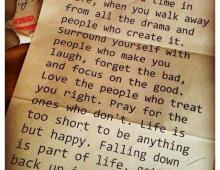 time in
when you walk away
from all the drama and
people who create it.
Surround yourself with
people who make you
laugh, forget the bad,
and focus on the good.
Love the people who treat
you right. Pray for the
ones who don't. Life is
too short to be anything
but happy. Falling down
is part of life,
back up